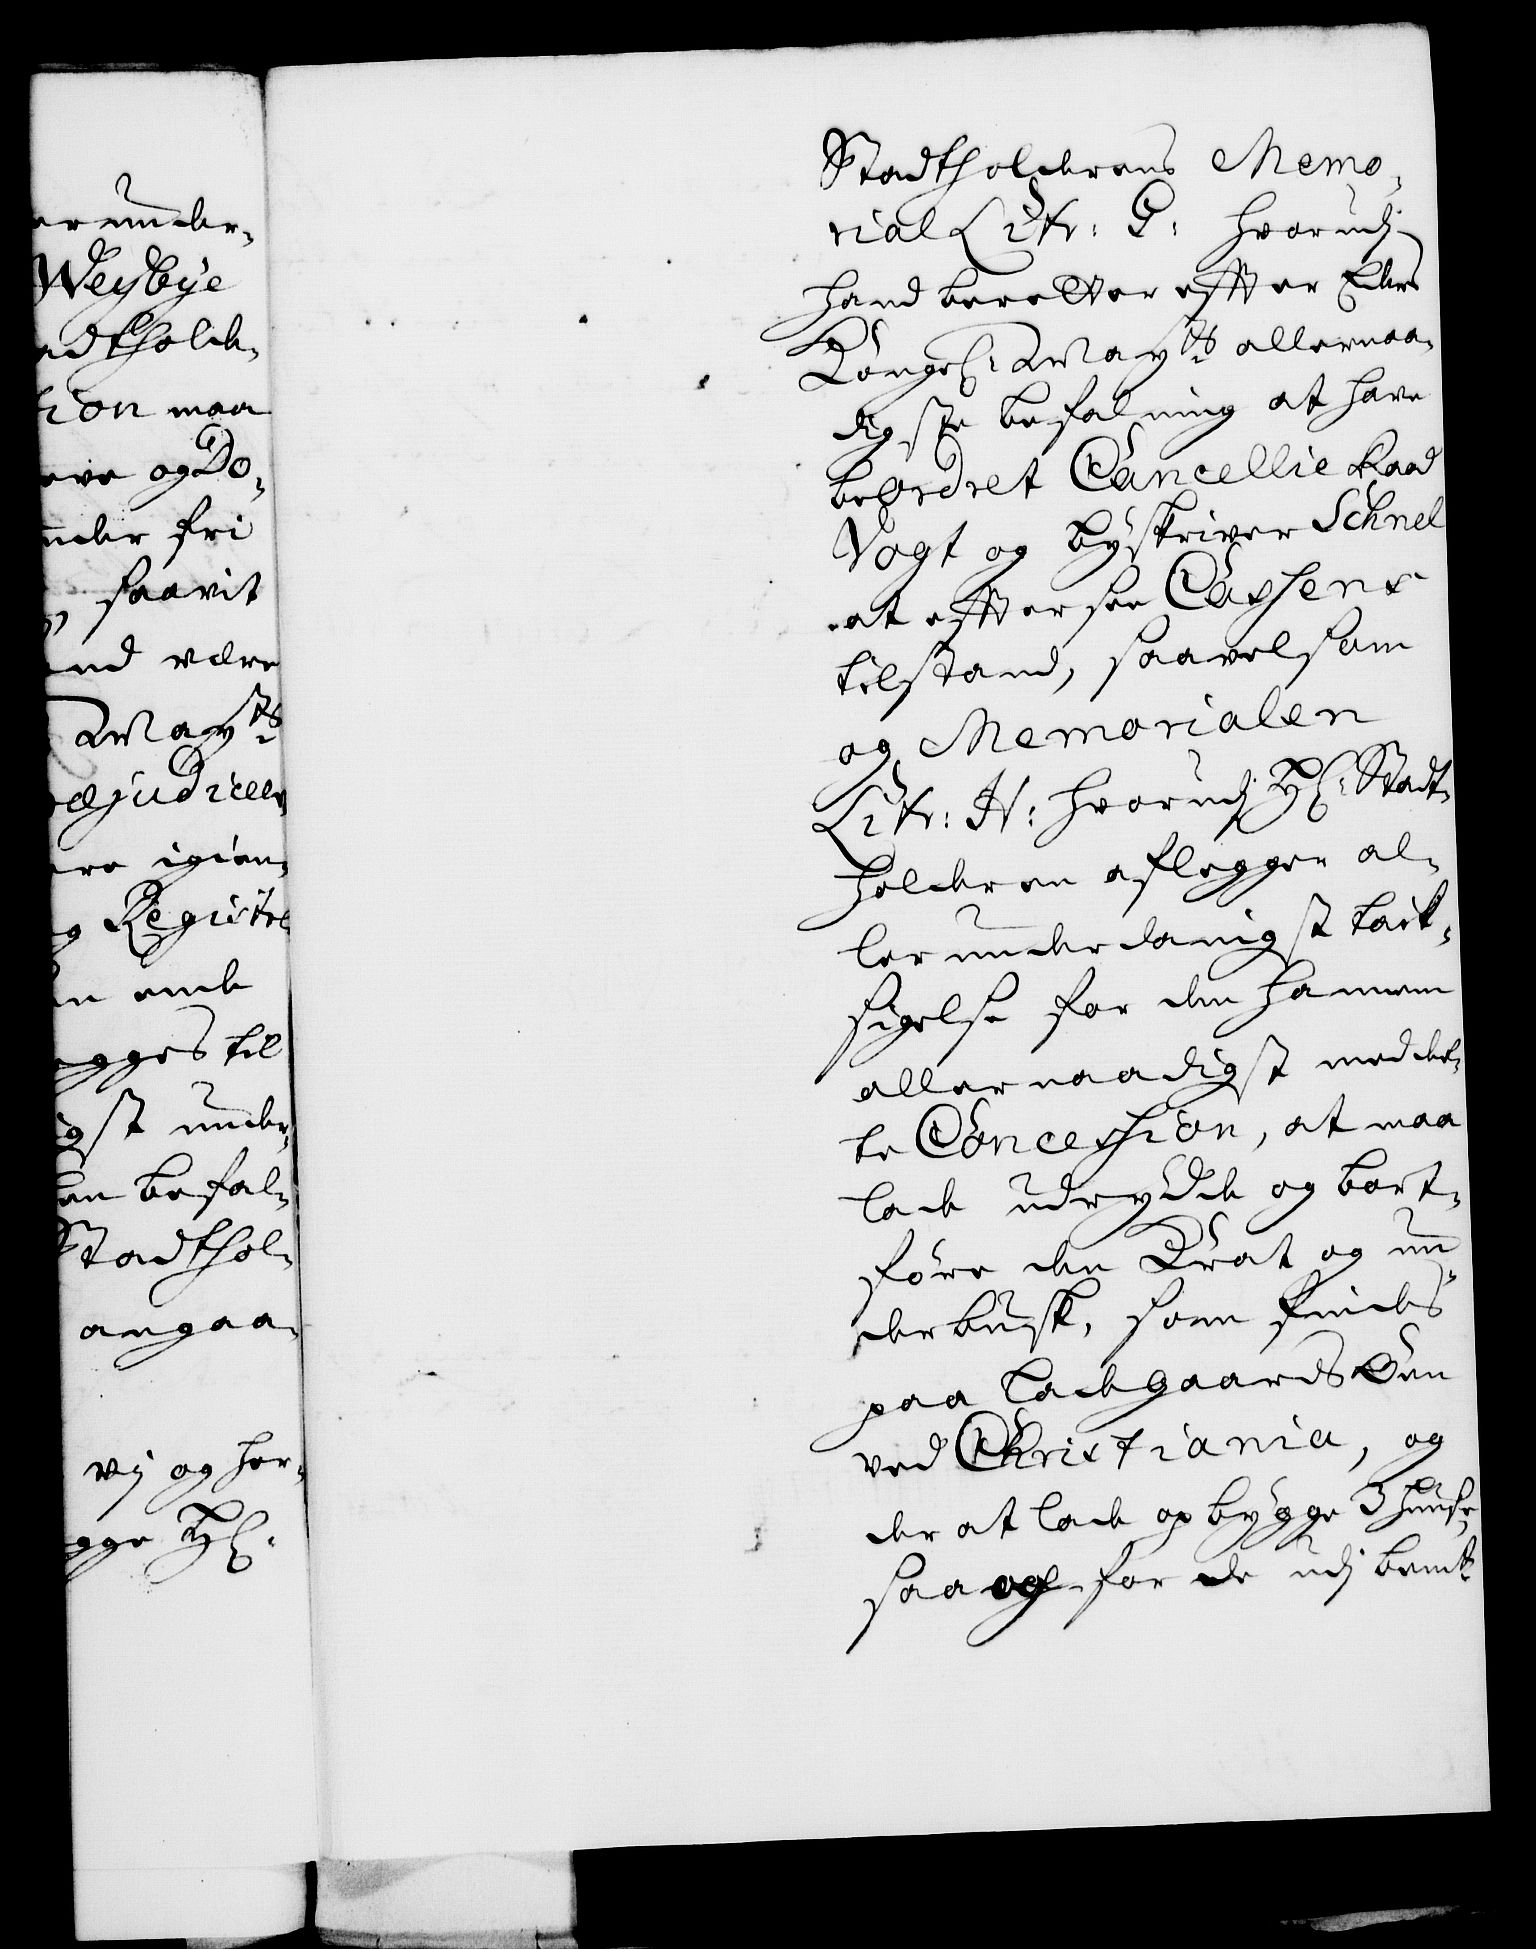 er under-
Weybye
adtholde-
tion maa
eve og Do-
nder fri
saavit
nd være
May:ts
æjudicere
ere igien-
g Registre
n ende
egges til
igst under-
en befal-
Stadthol-
angaa-
vj og her-
gge Hl:
Stadtholderens Memo-
rial Litr: G: hvorudj
hand beretter efter Eders
Kongel: May:ts allernaa-
digste befalning at have
beordret Cancellie Raad
Vogt og byskriver Schnel
at effter see Cassens
tilstand, saavelsom
og Memorialen
Litr: H: hvorudj Hl: Stadt-
holderen aflegger al-
lerunderdanigst tak-
sigelse for den hannem
allernaadigst meddel-
te Concession, at maa
lade udrydde og bort-
føre den Krat og un-
derbusk, som findes
paa Ladegaards Øen
ved Christiania, og
der at lade opbygge 3 huuse
saa og for de udj bem:te